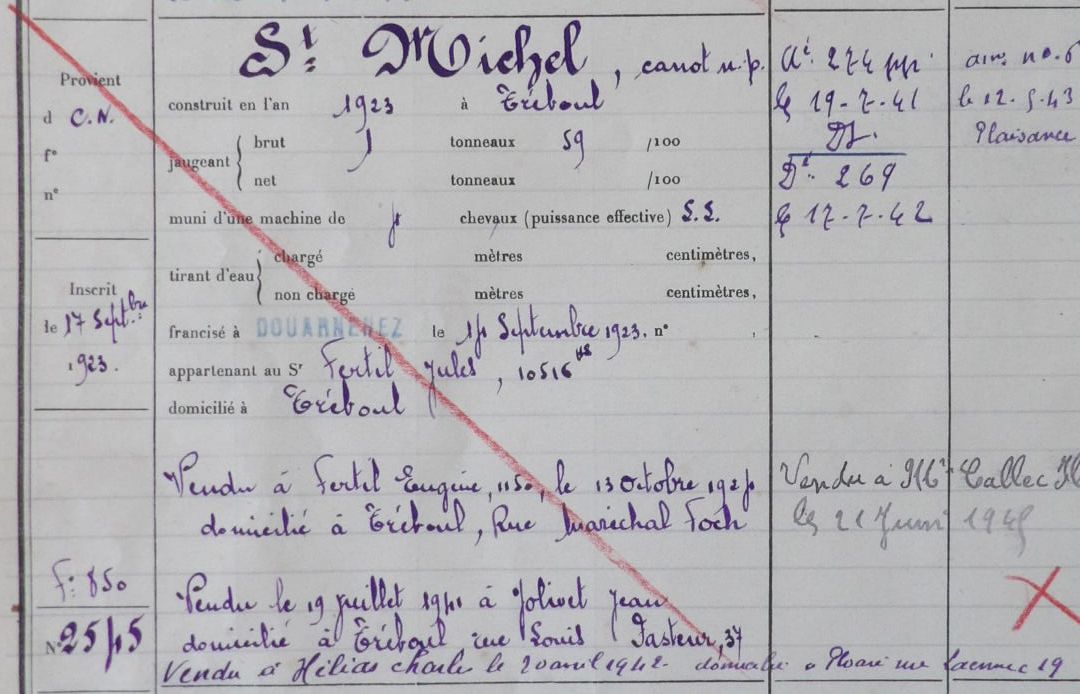 St Michel, canot n.p.
Provient
d C.N.
fº
nº
construit en l'an 1923 à Tréboul
jaugeant
brut 1 tonneaux 59 /100
net tonneaux /100
muni d'une machine de chevaux (puissance effective) S.S.
tirant d'eau
chargé mètres centimètres,
non chargé mètres centimètres,
Inscrit
le 17 Septbre
1923.
francisé à DOUARNENEZ le Septembre 1923. nº
appartenant au Sr Fertil Jules, 10516
domicilié à Tréboul
Vendu à Fertil Eugène, 1150, le 13 Octobre
domicilié à Tréboul, Rue Maréchal Foch
Fº 850
Nº 2545
Vendu le 19 juillet 1941 à Jolivet Jean
domicilié à Tréboul rue Louis Pasteur, 37
Vendu à Hélias Charles le 20 avril 1942 domicilié à Ploaré rue Laennec 19
274
le 19-7-41
Dt. 269
le 17-7-42
le 12.5.43
Plaisance
Vendu à Mr Callec
le 21 Juin